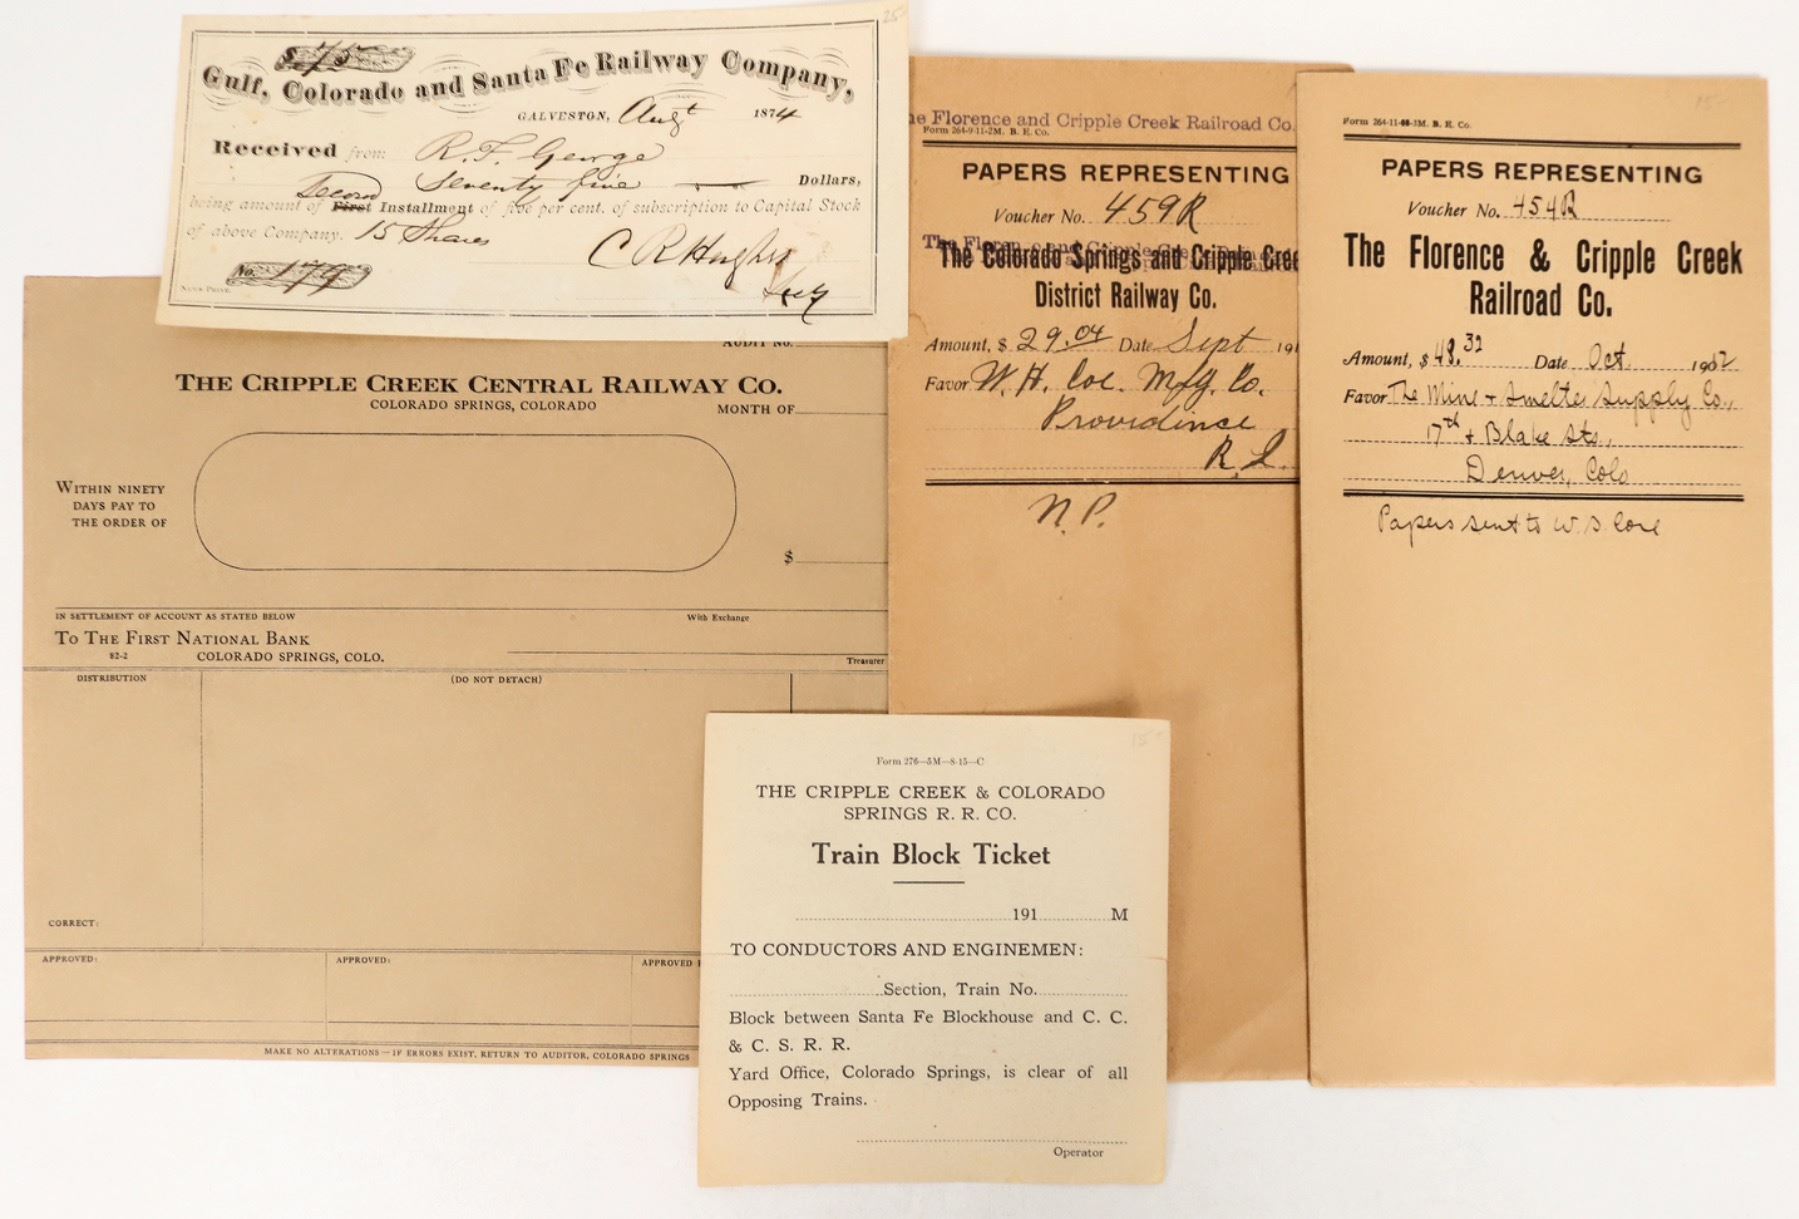 25-
$ 75
Gulf, Colorado and Santa Fe Railway Company,
GALVESTON, Augt 1874
Received from R. F. George
Seventy five — Dollars,
Second
being amount of First Installment of five per cent. of subscription to Capital Stock
of above Company. 15 Shares
C R Hughes
Secy
No. 179
AUDIT NO.
THE CRIPPLE CREEK CENTRAL RAILWAY CO.
COLORADO SPRINGS, COLORADO
MONTH OF
WITHIN NINETY
DAYS PAY TO
THE ORDER OF
$
IN SETTLEMENT OF ACCOUNT AS STATED BELOW
With Exchange
TO THE FIRST NATIONAL BANK
82-2 COLORADO SPRINGS, COLO.
Treasurer
DISTRIBUTION
(DO NOT DETACH)
CORRECT:
APPROVED:
APPROVED:
APPROVED
MAKE NO ALTERATIONS—IF ERRORS EXIST, RETURN TO AUDITOR, COLORADO SPRINGS
he Florence and Cripple Creek Railroad Co.
Form 264-9-11-2M. B. E. Co.
PAPERS REPRESENTING
Voucher No. 459R
The Colorado Springs and Cripple Cree
District Railway Co.
Amount, $ 29.04 Date Sept 191
Favor W. H. Coe. Mfg. Co.
Providence
R. I.
N.P.
15-
PAPERS REPRESENTING
Voucher No. 454R
The Florence & Cripple Creek
Railroad Co.
Amount, $ 48.32 Date Oct.
Favor The Mine + Smelter Supply Co.,
17th + Blake Sts.,
Denver, Colo
Papers sent to W. S.
15-
Form 276—5M—8-15—C
THE CRIPPLE CREEK & COLORADO
SPRINGS R. R. CO.
Train Block Ticket
191 M
TO CONDUCTORS AND ENGINEMEN:
Section, Train No.
Block between Santa Fe Blockhouse and C. C.
& C. S. R. R.
Yard Office, Colorado Springs, is clear of all
Opposing Trains.
Operator